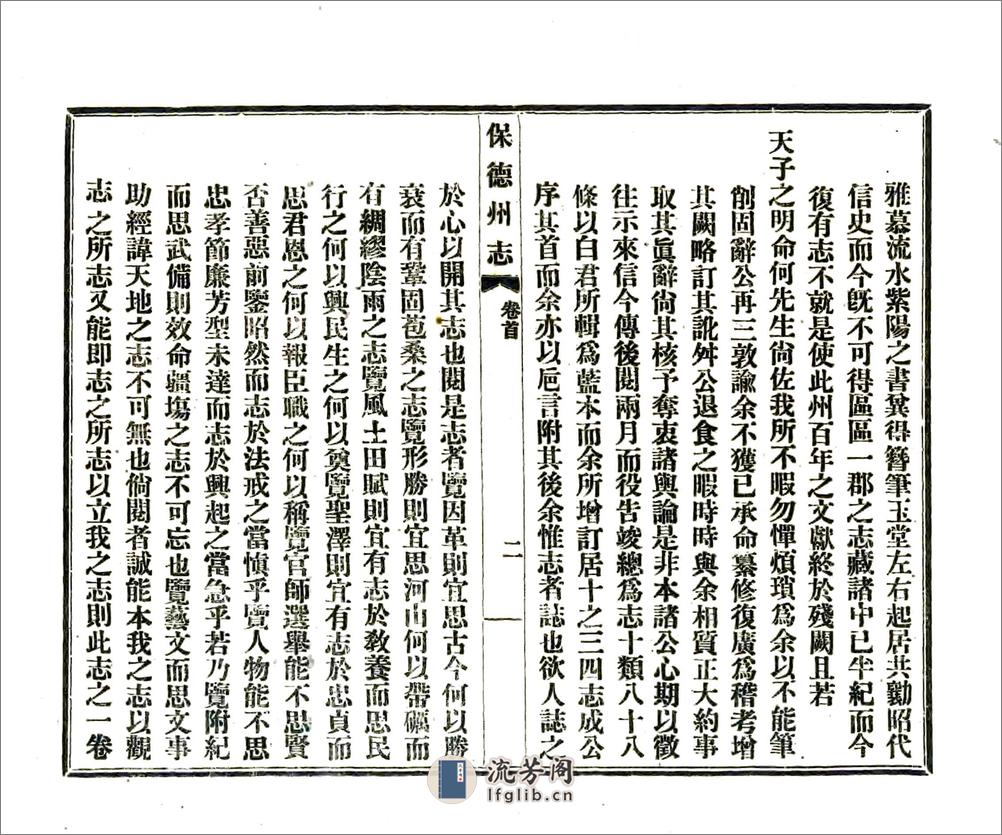 雅慕流水紫陽之書冀得簪筆玉堂左右起居共勷昭代
信史而今旣不可得區區一郡之志藏諸中已半紀而今
復有志不就是使此州百年之文獻終於殘闕且若
天子之明命何先生尙佐我所不暇勿憚煩瑣爲余以不能筆
削固辭公再三敦諭余不獲已承命纂修復廣爲稽考增
其闕略訂其訛舛公退食之暇時時與余相質正大約事
取其眞辭尙其核予奪衷諸輿論是非本諸公心期以徵
往示來信今傳後閱兩月而役告竣總爲志十類八十八
條以白君所輯爲藍本而余所增訂居十之三四志成公
序其首而余亦以卮言附其後余惟志者誌也欲人誌之
保德州志
卷首
二
於心以開其志也閱是志者覽因革則宜思古今何以勝
衰而有鞏固苞桑之志覽形勝則宜思河山何以帶礪而
有綢繆陰雨之志覽風土田賦則宜有志於敎養而思民
行之何以興民生之何以奠覽聖澤則宜有志於忠貞而
思君恩之何以報臣職之何以稱覽官師選舉能不思賢
否善惡前鑒昭然而志於法戒之當愼乎覽人物能不思
忠孝節廉芳型未達而志於興起之當急乎若乃覽附紀
而思武備則效命疆塲之志不可忘也覽藝文而思文事
助經諱天地之志不可無也倘閱者誠能本我之志以觀
志之所志又能即志之所志以立我之志則此志之一卷
流芳阁
lfglib.cn